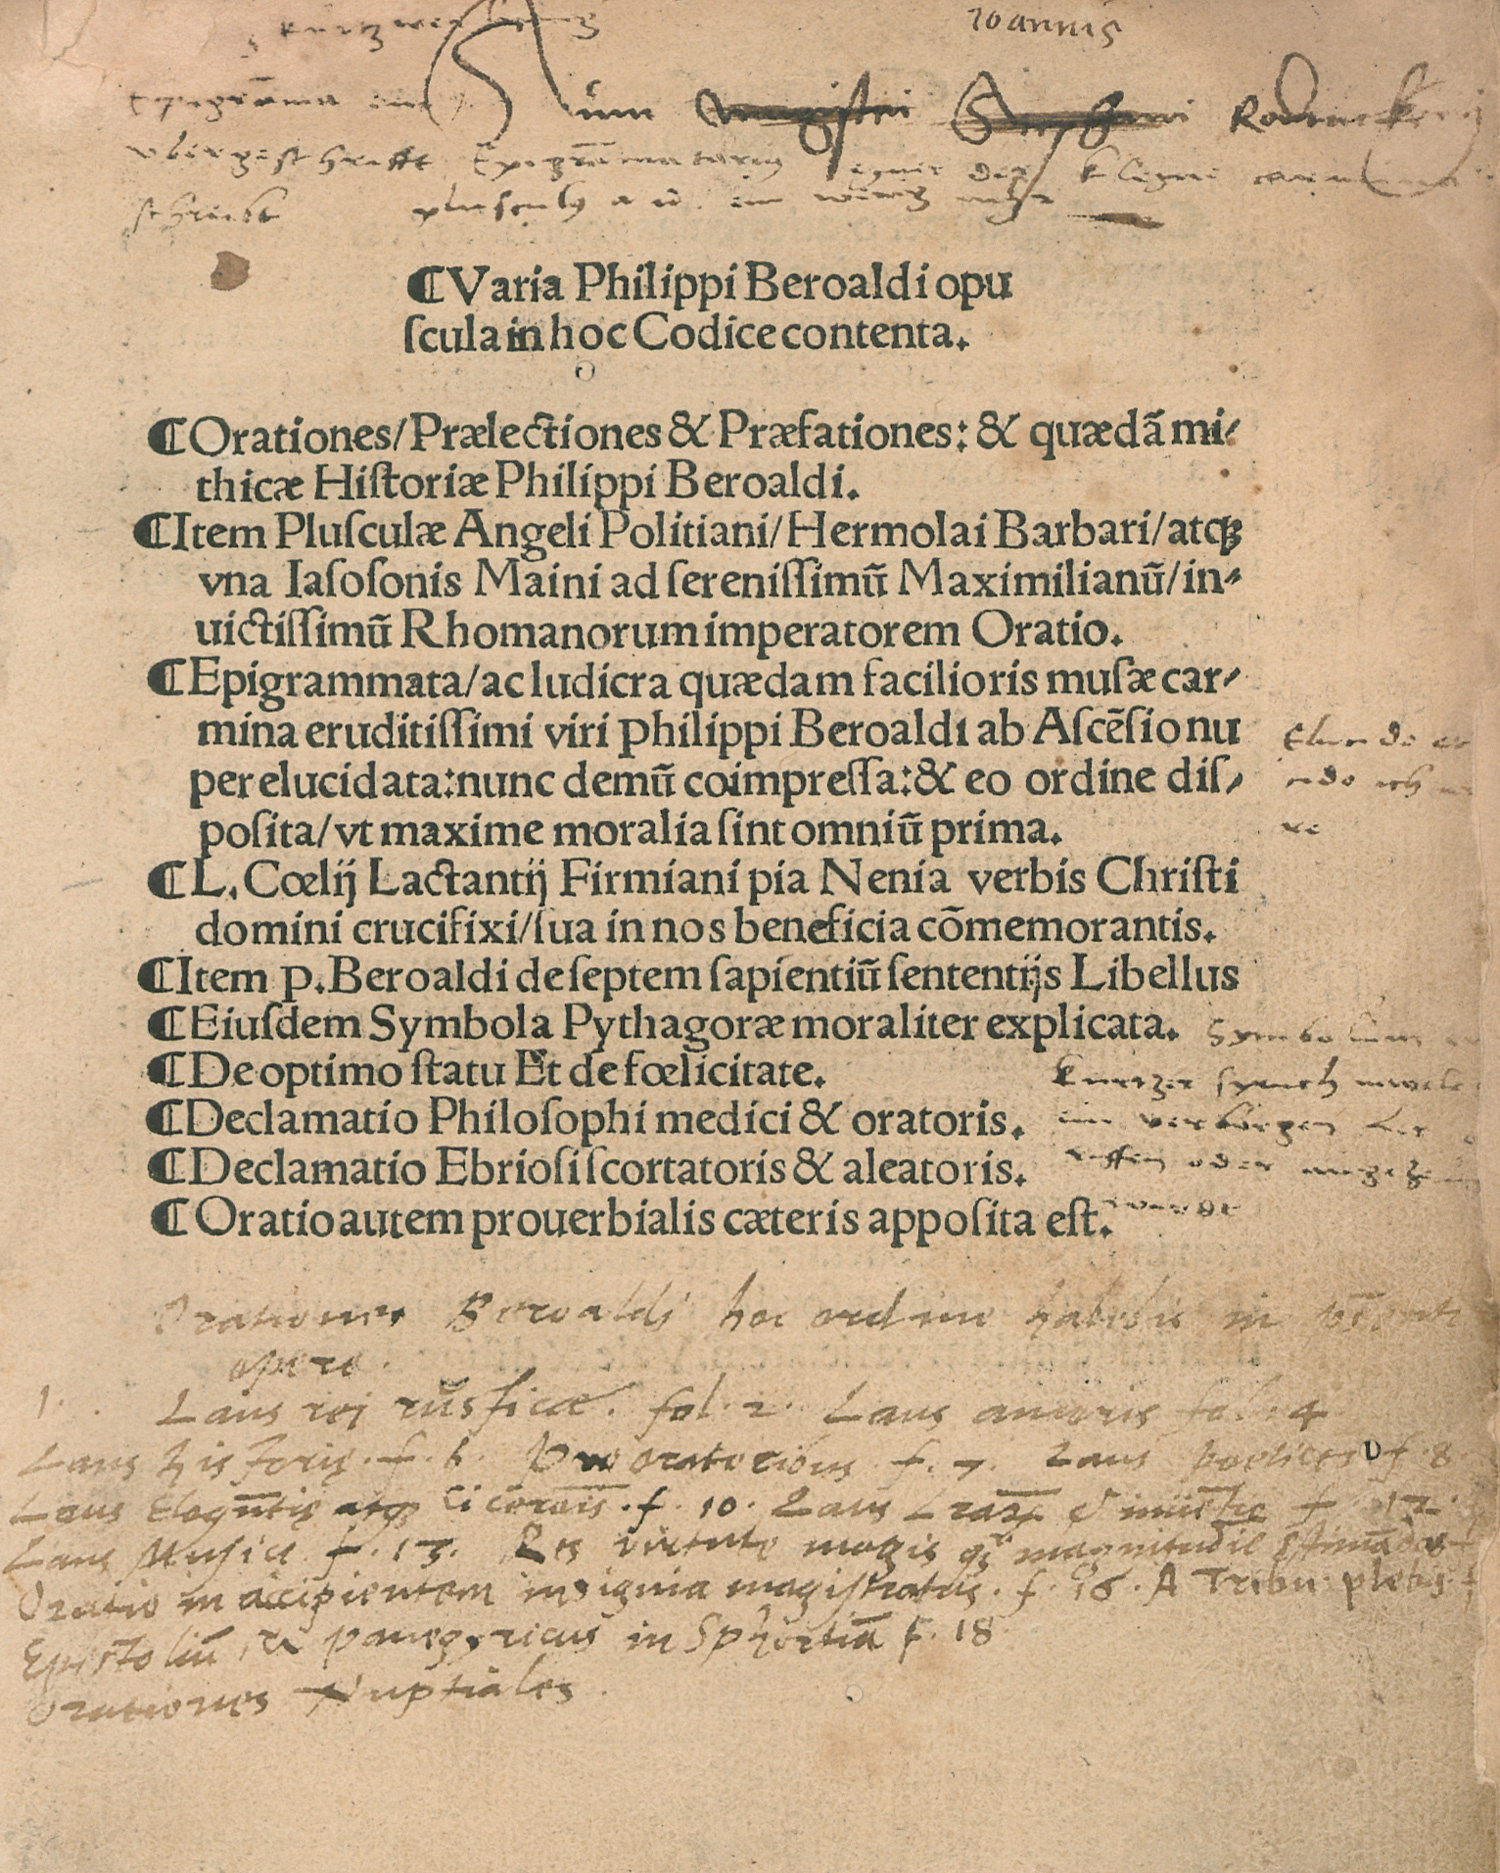 Ioannis
Epigrama
Sum magistri Rod
vbergeschrifft Epigramatarius eyner der kleyne
schreibt plusculus a u. ein wenig mehr
¶Varia Philippi Beroaldi opu
ſcula in hoc Codice contenta.
¶Orationes/Prælectiones & Præfationes: & quædã mi⸗
thicæ Hiſtoriæ Philippi Beroaldi.
¶Item Pluſculæ Angeli Politiani/Hermolai Barbari/atqꝫ
vna Iaſoſonis Maini ad ſereniſſimũ Maximilianũ/in⸗
uictiſſimũ Rhomanorum imperatorem Oratio.
¶Epigrammata/ac ludicra quædam facilioris muſæ car⸗
mina eruditiſſimi viri philippi Beroaldi ab Aſcẽſio nu
per elucidata:nunc demũ coimpreſſa:& eo ordine diſ⸗
poſita/vt maxime moralia ſint omniũ prima.
¶L. Cœlij Lactantij Firmiani pia Nenia verbis Chriſti
domini crucifixi/ſua in nos beneficia cõmemorantis.
¶Item p. Beroaldi de ſeptem ſapientiũ ſententijs Libellus
¶Eiuſdem Symbola Pythagoræ moraliter explicata.
Symbolum
¶De optimo ſtatu Et de fœlicitate.
kurtzer spruch
¶Declamatio Philoſophi medici & oratoris.
ein verborgen
¶Declamatio Ebrioſi ſcortatoris & aleatoris.
oder
¶Oratio autem prouerbialis cæteris appoſita eſt.
Orationes Beroaldi hoc ordine habebis in
opere.
1. Laus rei rusticæ. fol. 2. Laus amoris fol. 4
Laus historię. f. 6. Pro oratoribus f. 7. Laus poetices f. 8
Laus Eloquẽtię atqꝫ Ciceronis. f. 10. Laus f. 12.
Laus Musicæ f. 13. Res virtute magis magnitudine
Oratio in accipientem insignia magistratus. f. 16. A Tribu. plebis. f
Epistoliũ, & panegyricus in Sphortiã f. 18
Orationes Nuptiales.